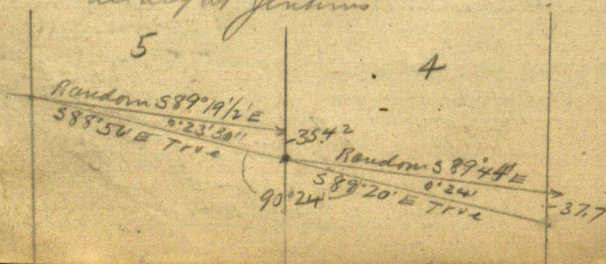 at Jenkins
5
4
Random S 89° 19 1/2' E
0° 23' 30"
S 88° 56' E True
35.4²
Random S 89° 44' E
0° 24'
S 89° 20' E True
90° 24'
37.7